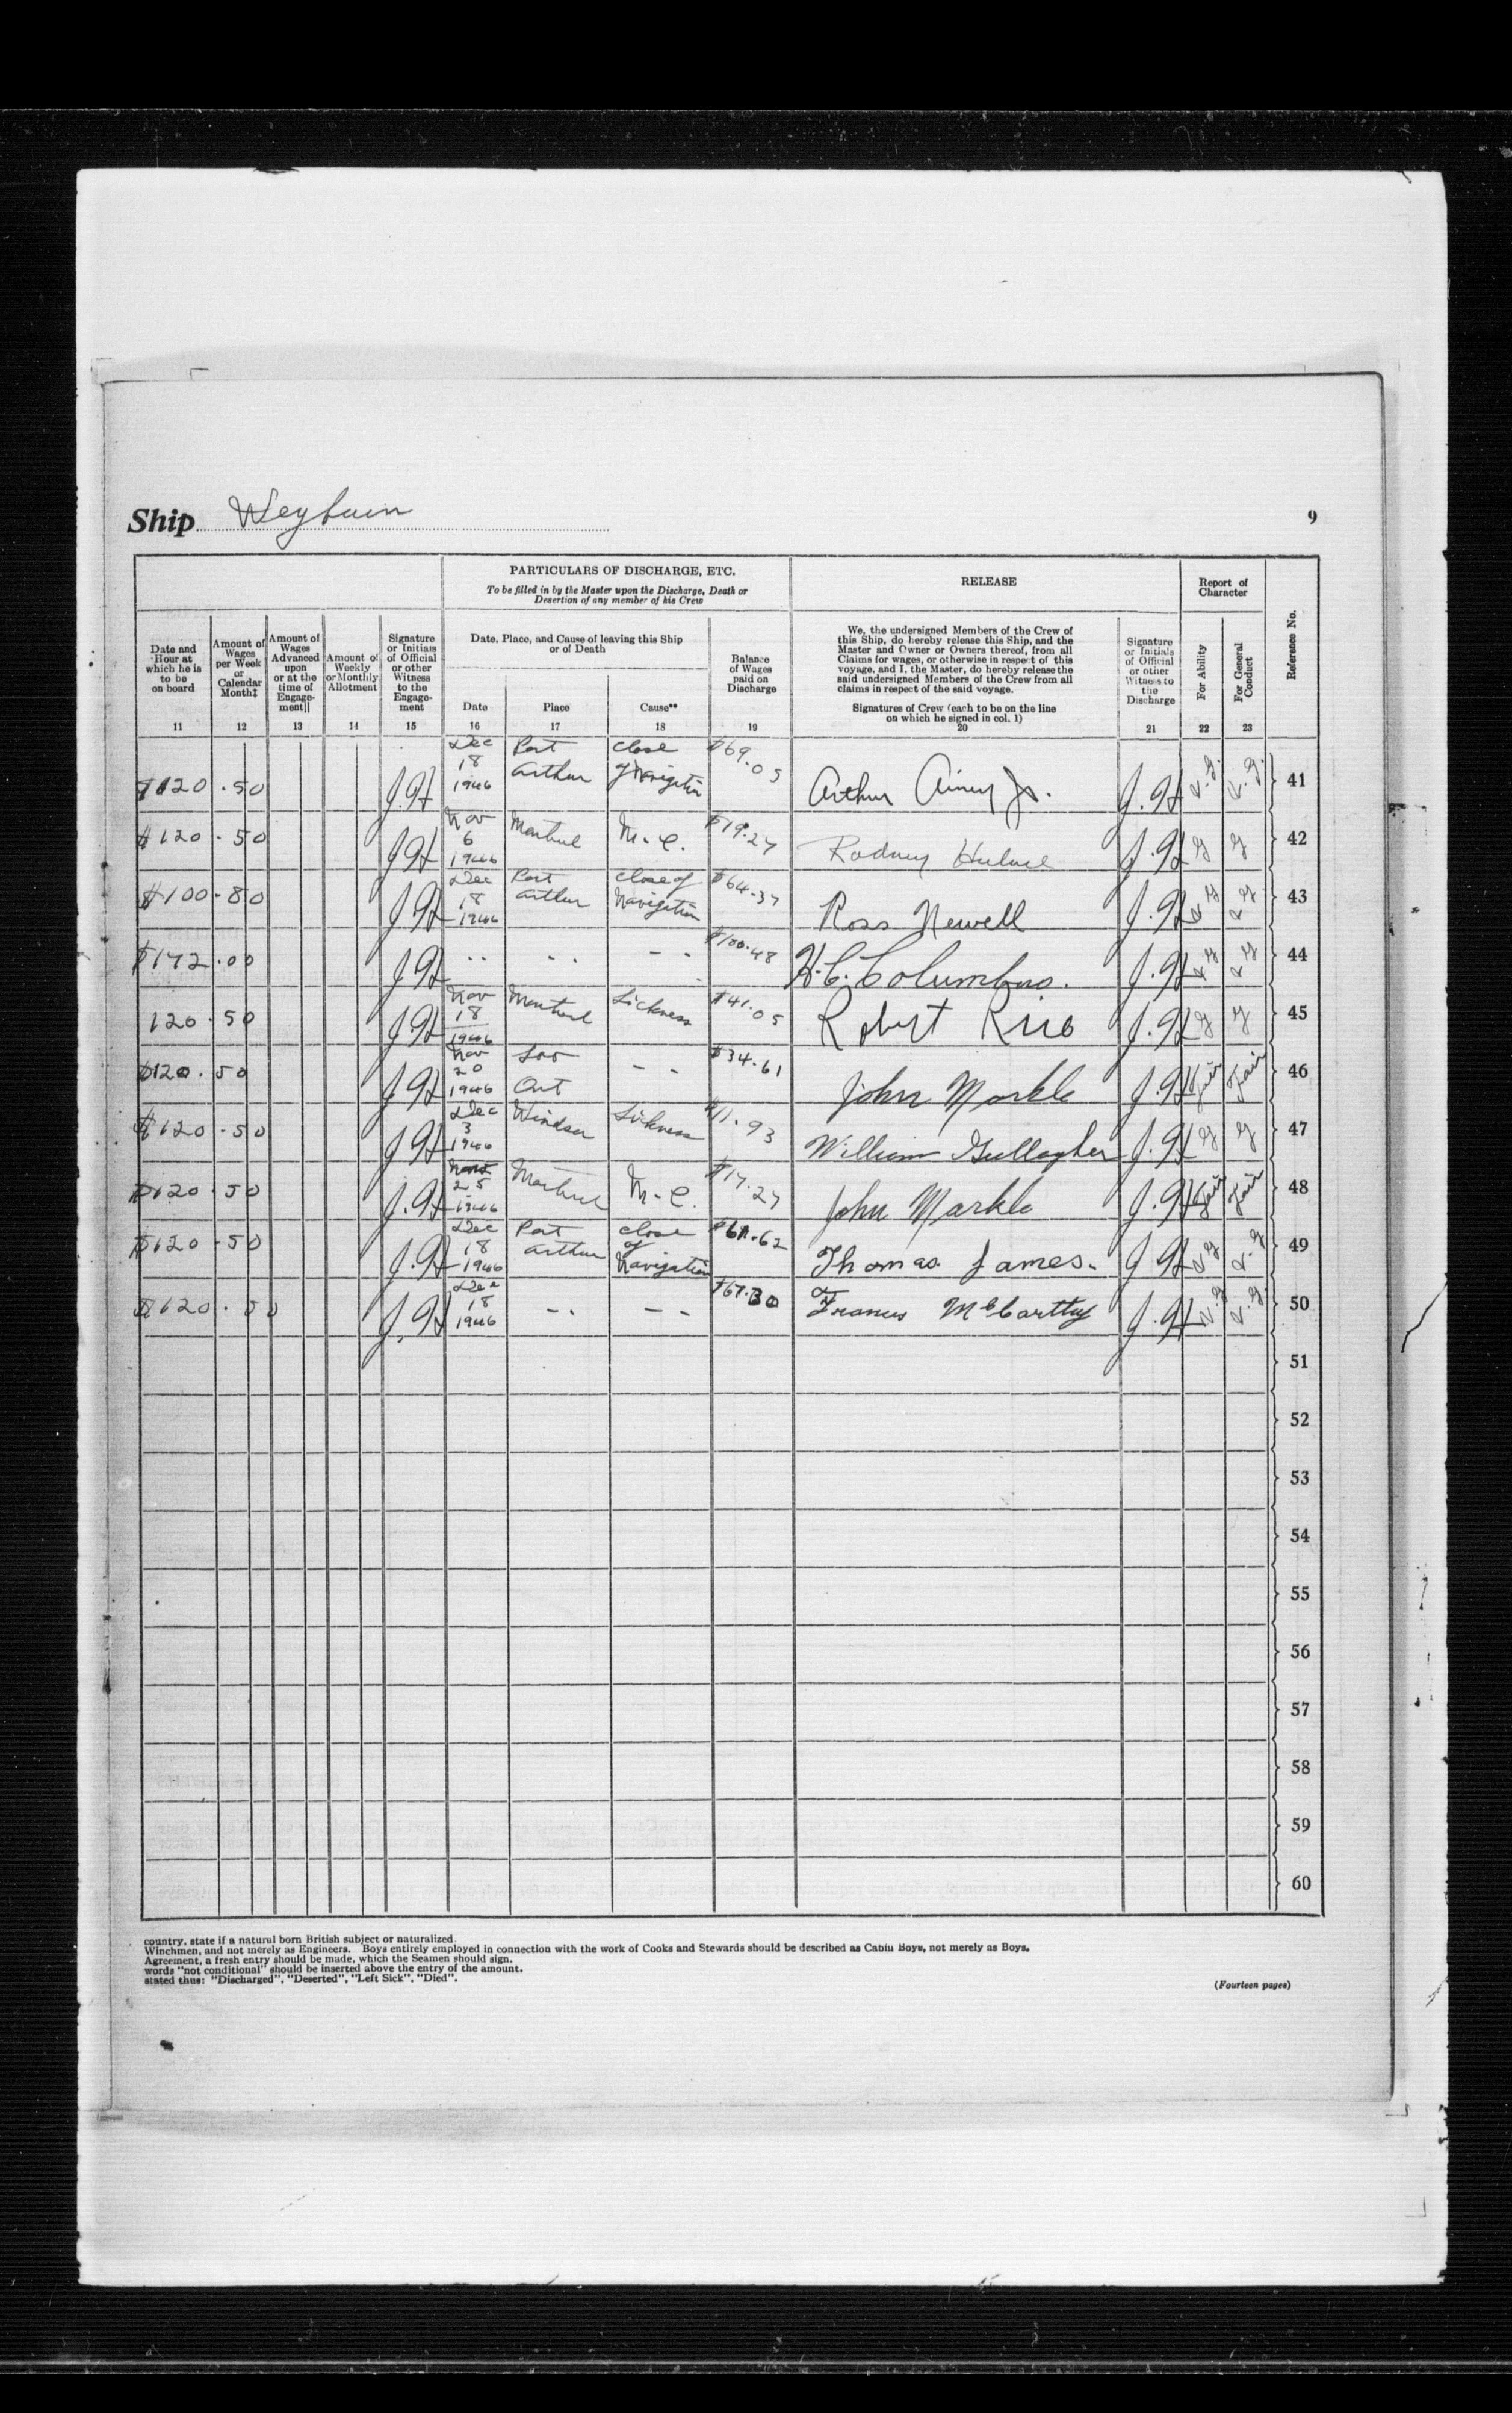 Ship Weyburn
9
PARTICULARS OF DISCHARGE, ETC.
To be filled in by the Master upon the Discharge, Death or
Desertion of any member of his Crew
RELEASE
Report of
Character
Reference No.
Date and
Hour at
which he is
to be
on board
11
Amount of
Wages
per Week
or
Calendar
Month‡
12
Amount of
Wages
Advanced
upon
or at the
time of
Engage-
ment||
13
Amount of
Weekly
or Monthly
Allotment
14
Signature
or Initials
of Official
or other
Witness
to the
Engage-
ment
15
Date, Place, and Cause of leaving this Ship
or of Death
Date
16
Place
17
Cause**
18
Balance
of Wages
paid on
Discharge
19
We, the undersigned Members of the Crew of
this Ship, do hereby release this Ship, and the
Master and Owner or Owners thereof, from all
Claims for wages, or otherwise in respect of this
voyage, and I, the Master, do hereby release the
said undersigned Members of the Crew from all
claims in respect of the said voyage.
Signatures of Crew (each to be on the line
on which he signed in col. 1)
20
Signature
or Initials
of Official
or other
Witness to
the
Discharge
21
For Ability
22
For General
Conduct
23
$120.50 Dec 18 1946 Port Arthur close of Navigation $69.05 Arthur Ainey Jr. V.G. V.G. 41
$120.50 Nov 6 1946 Montreal M.C. $19.27 Rodney Hulme G G 42
$100.80 Dec 18 1946 Port Arthur close of Navigation $64.37 Ross Newell V G V G 43
$172.00 " " " " " " $100.48 H.C. Columbus. V G V G 44
120.50 Nov 18 1946 Montreal Sickness $41.05 Robert G G 45
$120.50 Nov 20 1946 Soo Ont " " $34.61 John Markle Fair Fair 46
$120.50 Dec 3 1946 Windsor Sickness $11.93 William Gullagher G G 47
$120.50 25 1946 Montreal M.C. $17.27 John Markle Fair Fair 48
$120.50 Dec 18 1946 Port Arthur close of Navigation $61.62 Thomas James. V G V.G 49
$120.50 Dec 18 1946 " " " " $67.30 Francis McCarthy V.G V.G. 50
51
52
53
54
55
56
57
58
59
60
country, state if a natural born British subject or naturalized.
Winchmen, and not merely as Engineers. Boys entirely employed in connection with the work of Cooks and Stewards should be described as Cabin Boys, not merely as Boys.
Agreement, a fresh entry should be made, which the Seamen should sign.
words "not conditional" should be inserted above the entry of the amount.
stated thus: "Discharged", "Deserted", "Left Sick", "Died".
(Fourteen pages)